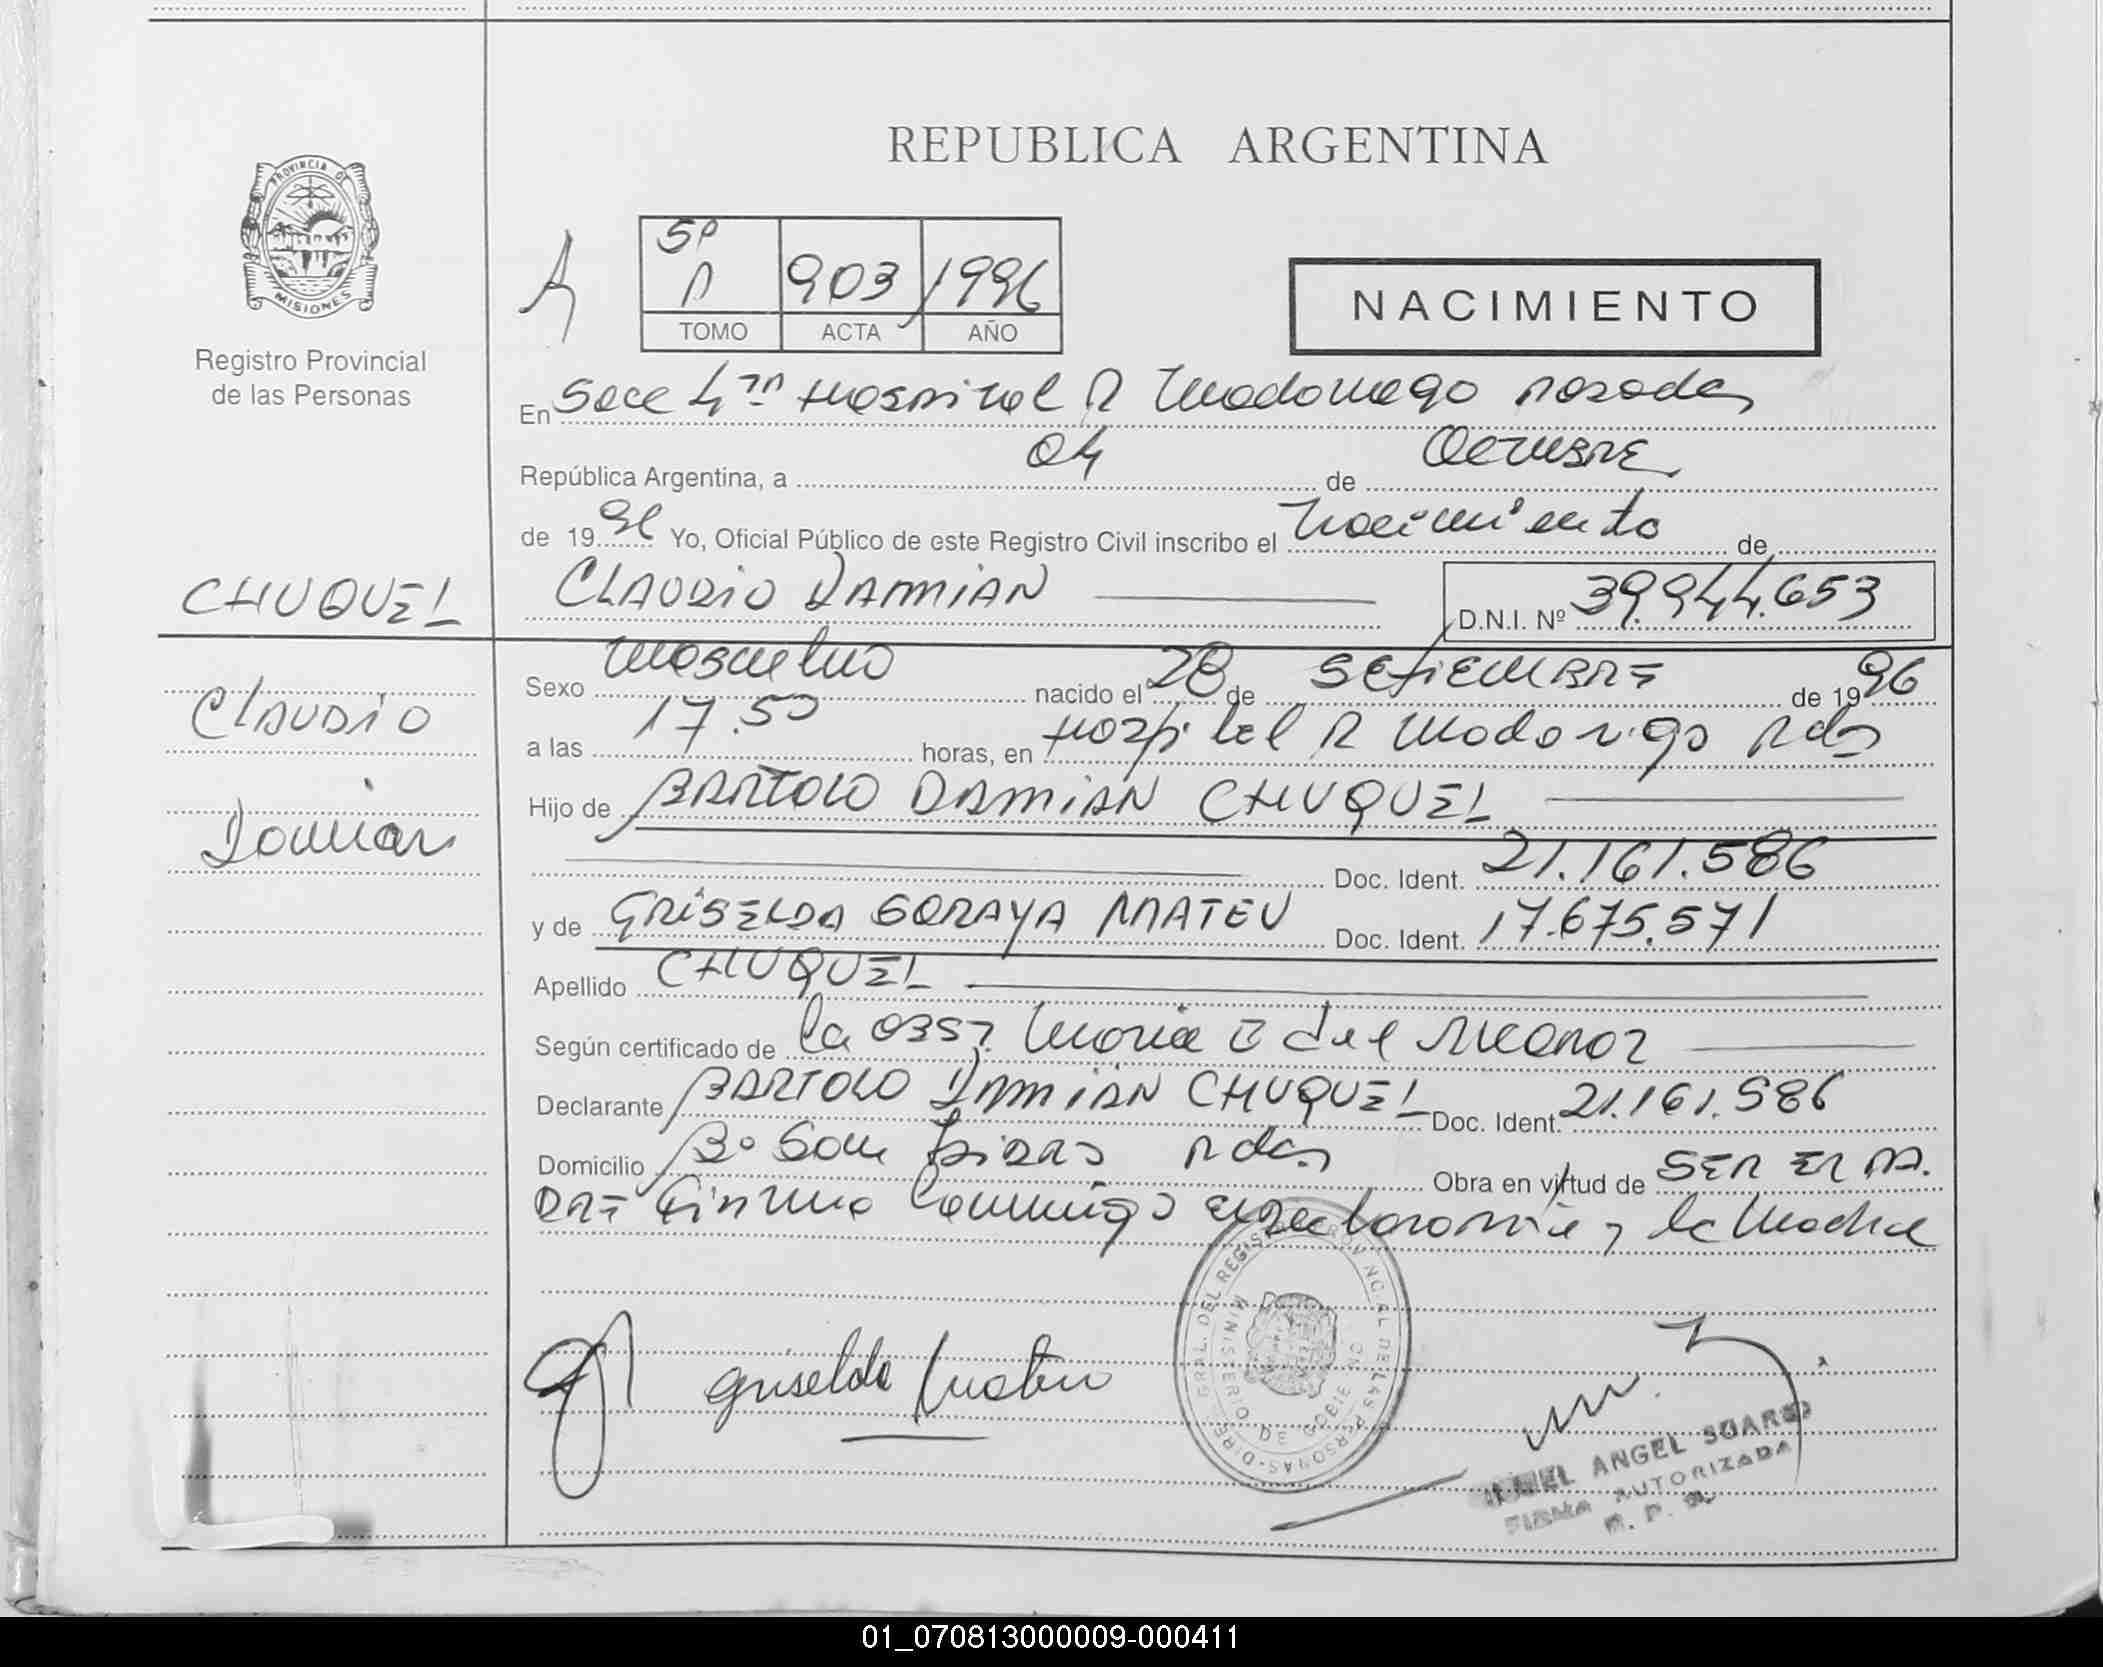 REPUBLICA ARGENTINA
PROVINCIA DE
MISIONES
Registro Provincial
de las Personas
5º
903 1996
TOMO ACTA AÑO
NACIMIENTO
En Secc 4ta Hospital R Madariaga Posadas
República Argentina, a 04 de Octubre
de 1996 Yo, Oficial Público de este Registro Civil inscribo el Nacimiento de
CHUQUEL
CLAUDIO DAMIAN
D.N.I. Nº 39.944.653
Claudio
Damian
Sexo Masculino nacido el 28 de SETIEMBRE de 1996
a las 17.50 horas, en Hospital R Madariaga Pdas
Hijo de BARTOLO DAMIAN CHUQUEL
Doc. Ident. 21.161.586
y de GRISELDA SORAYA MATEU Doc. Ident. 17.675.571
Apellido CHUQUEL
Según certificado de la Obst. Maria
Declarante BARTOLO DAMIAN CHUQUEL Doc. Ident. 21.161.586
Domicilio Bº San Isidro Pdas Obra en virtud de SER EL PA.
DRE Firma Conmigo el declarante y la Madre
Griselda Mateu
DEL REGISTRO PROVINCIAL DE LAS PERSONAS
MINISTERIO DE GOBIERNO
ANGEL SUAREZ
FIRMA AUTORIZADA
R. P. P.
01_070813000009-000411